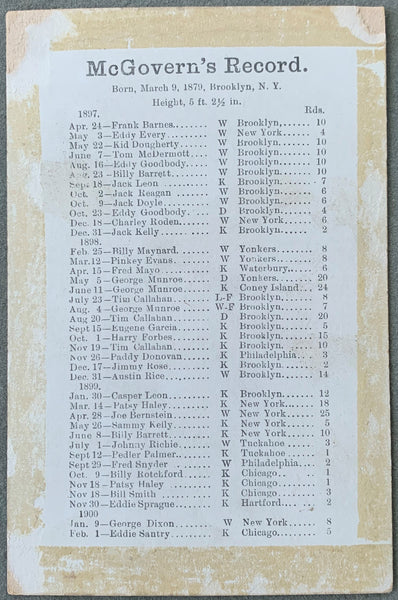 McGovern's Record.
Born, March 9, 1879, Brooklyn, N. Y.
Height, 5 ft. 2½ in.
1897. Rds.
Apr. 24—Frank Barnes........ W Brooklyn,...... 10
May 3—Eddy Every......... W New York...... 4
May 22—Kid Dougherty...... W Brooklyn....... 10
June 7—Tom McDermott... W Brooklyn....... 10
Aug. 16—Eddy Goodbody..... W Brooklyn....... 10
Aug. 23—Billy Barrett......... W Brooklyn....... 10
Sept 18—Jack Leon ............ K Brooklyn....... 7
Oct. 2—Jack Reagan ........ W Brooklyn....... 6
Oct. 9—Jack Doyle........... W Brooklyn....... 6
Oct. 23—Eddy Goodbody..... D Brooklyn....... 4
Dec. 18—Charley Roden...... W New York...... 6
Dec. 31—Jack Kelly............ K Brooklyn....... 2
1898.
Feb. 25—Billy Maynard....... W Yonkers........ 8
Mar. 12—Pinkey Evans........ W Yonkers........ 8
Apr. 15—Fred Mayo........... K Waterbury..... 6
May 5—George Munroe..... D Yonkers........ 20
June 11—George Munroe..... K Coney Island... 24
July 23—Tim Callahan........ L-F Brooklyn....... 8
Aug. 4—George Munroe.... W-F Brooklyn....... 7
Aug 20—Tim Callahan........ D Brooklyn....... 20
Sept 15—Eugene Garcia....... K Brooklyn....... 5
Oct. 1—Harry Forbes........ K Brooklyn....... 15
Nov 19—Tim Callahan........ K Brooklyn....... 10
Nov 26—Paddy Donovan...... K Philadelphia... 3
Dec. 17—Jimmy Rose.......... K Brooklyn....... 2
Dec. 31—Austin Rice........... W Brooklyn....... 14
1899.
Jan. 30—Casper Leon.......... K Brooklyn....... 12
Mar. 14—Patsy Haley.......... K New York...... 18
Apr. 28—Joe Bernstein........ W New York...... 25
May 26—Sammy Kelly........ K New York...... 5
June 8—Billy Barrett......... K New York...... 10
July 1—Johnny Richie....... W Tuckahoe...... 3
Sept 12—Pedler Palmer....... K Tuckahoe...... 1
Sept 29—Fred Snyder ......... W Philadelphia.... 2
Oct. 9—Billy Rotchford ..... K Chicago......... 1
Nov 18—Patsy Haley .......... K Chicago......... 1
Nov 18—Bill Smith ............ K Chicago......... 3
Nov 30—Eddie Sprague........ K Hartford........ 2
1900
Jan. 9—George Dixon........ W New York...... 8
Feb. 1—Eddie Santry........ K Chicago......... 5